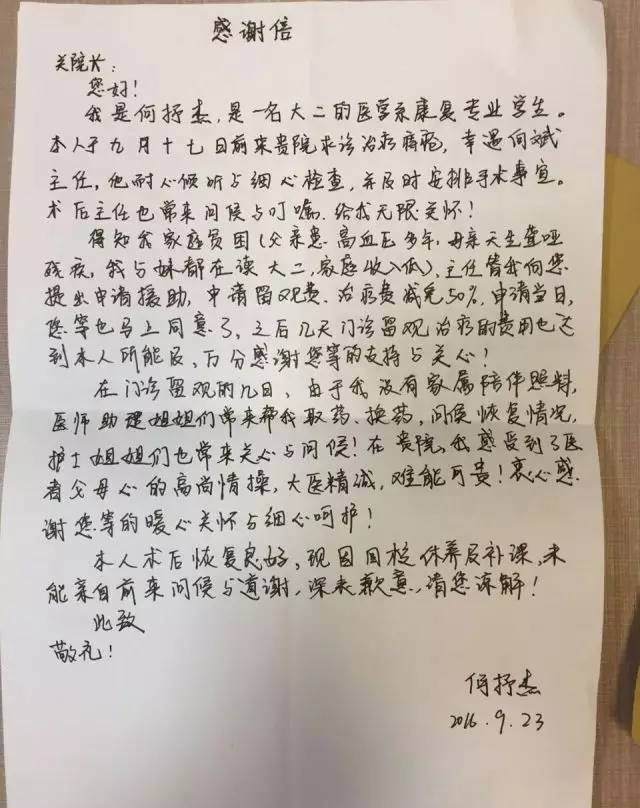 感谢信
关院长:
您好!
我是何抒杰,是一名大二的医学系康复专业学生。
本人于九月十七日前来贵院求诊治疗痔疮,幸遇向斌
主任,他耐心倾听与细心检查,并及时安排手术事宜。
术后主任也常来问候与叮嘱,给我无限关怀!
得知我家庭贫困(父亲患高血压多年,母亲天生聋哑
残疾,我与妹都在读大二,家庭收入低),主任替我向您
提出申请援助,申请留观费、治疗费减免50%,申请当日,
您等也马上同意了,之后几天门诊留观治疗的费用也达
到本人所能及,万分感谢您等的支持与关心!
在门诊留观的几日,由于我没有家属陪伴照料,
医师助理姐姐们常来帮我取药、换药,问候恢复情况,
护士姐姐们也常来关心与问候!在贵院,我感受到了医
者父母心的高尚情操,大医精诚,难能可贵!衷心感
谢您等的暖心关怀与细心呵护!
本人术后恢复良好,现因回校休养及补课,未
能亲自前来问候与道谢,深表歉意,请您谅解!
此致
敬礼!
何抒杰
2016.9.23